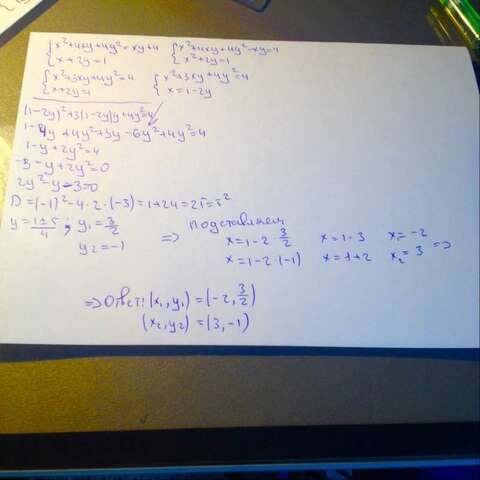 {x²+4xy+4y²=xy+4 {x²+4xy+4y²-xy=4
{x+2y=1 {x²+2y=1
{x²+3xy+4y²=4 {x²+3xy+4y²=4
{x+2y=1 {x=1-2y
(1-2y)²+3(1-2y)y+4y²=4
1-4y+4y²+3y-6y²+4y²=4
1-y+2y²=4
-3-y+2y²=0
2y²-y-3=0
D=(-1)²-4·2·(-3)=1+24=25=5²
y=1±5/4; y₁=3/2
y₂=-1
=> подставляем
x=1-2·3/2 x=1-3 x₁=-2
x=1-2·(-1) x=1+2 x₂=3 =>
=>Ответ: (x₁,y₁)=(-2,3/2)
(x₂,y₂)=(3,-1)